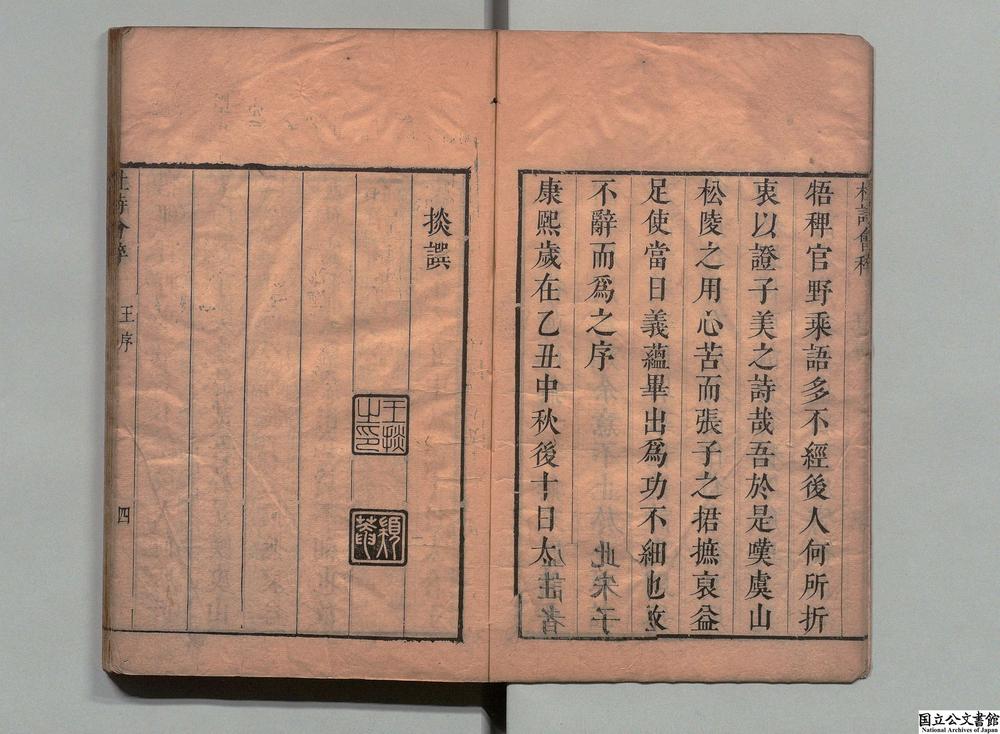 杜詩會稡
牾稗官野乘語多不經後人何所折
衷以證子美之詩哉吾於是嘆虞山
松陵之用心苦而張子之捃摭裒益
足使當日義蘊畢出爲功不細也故
不辭而爲之序
此宋子
康熙歲在乙丑中秋後十日太
註者
掞譔
王掞之印
杜詩會稡
王序
四
国立公文書館
National Archives of Japan